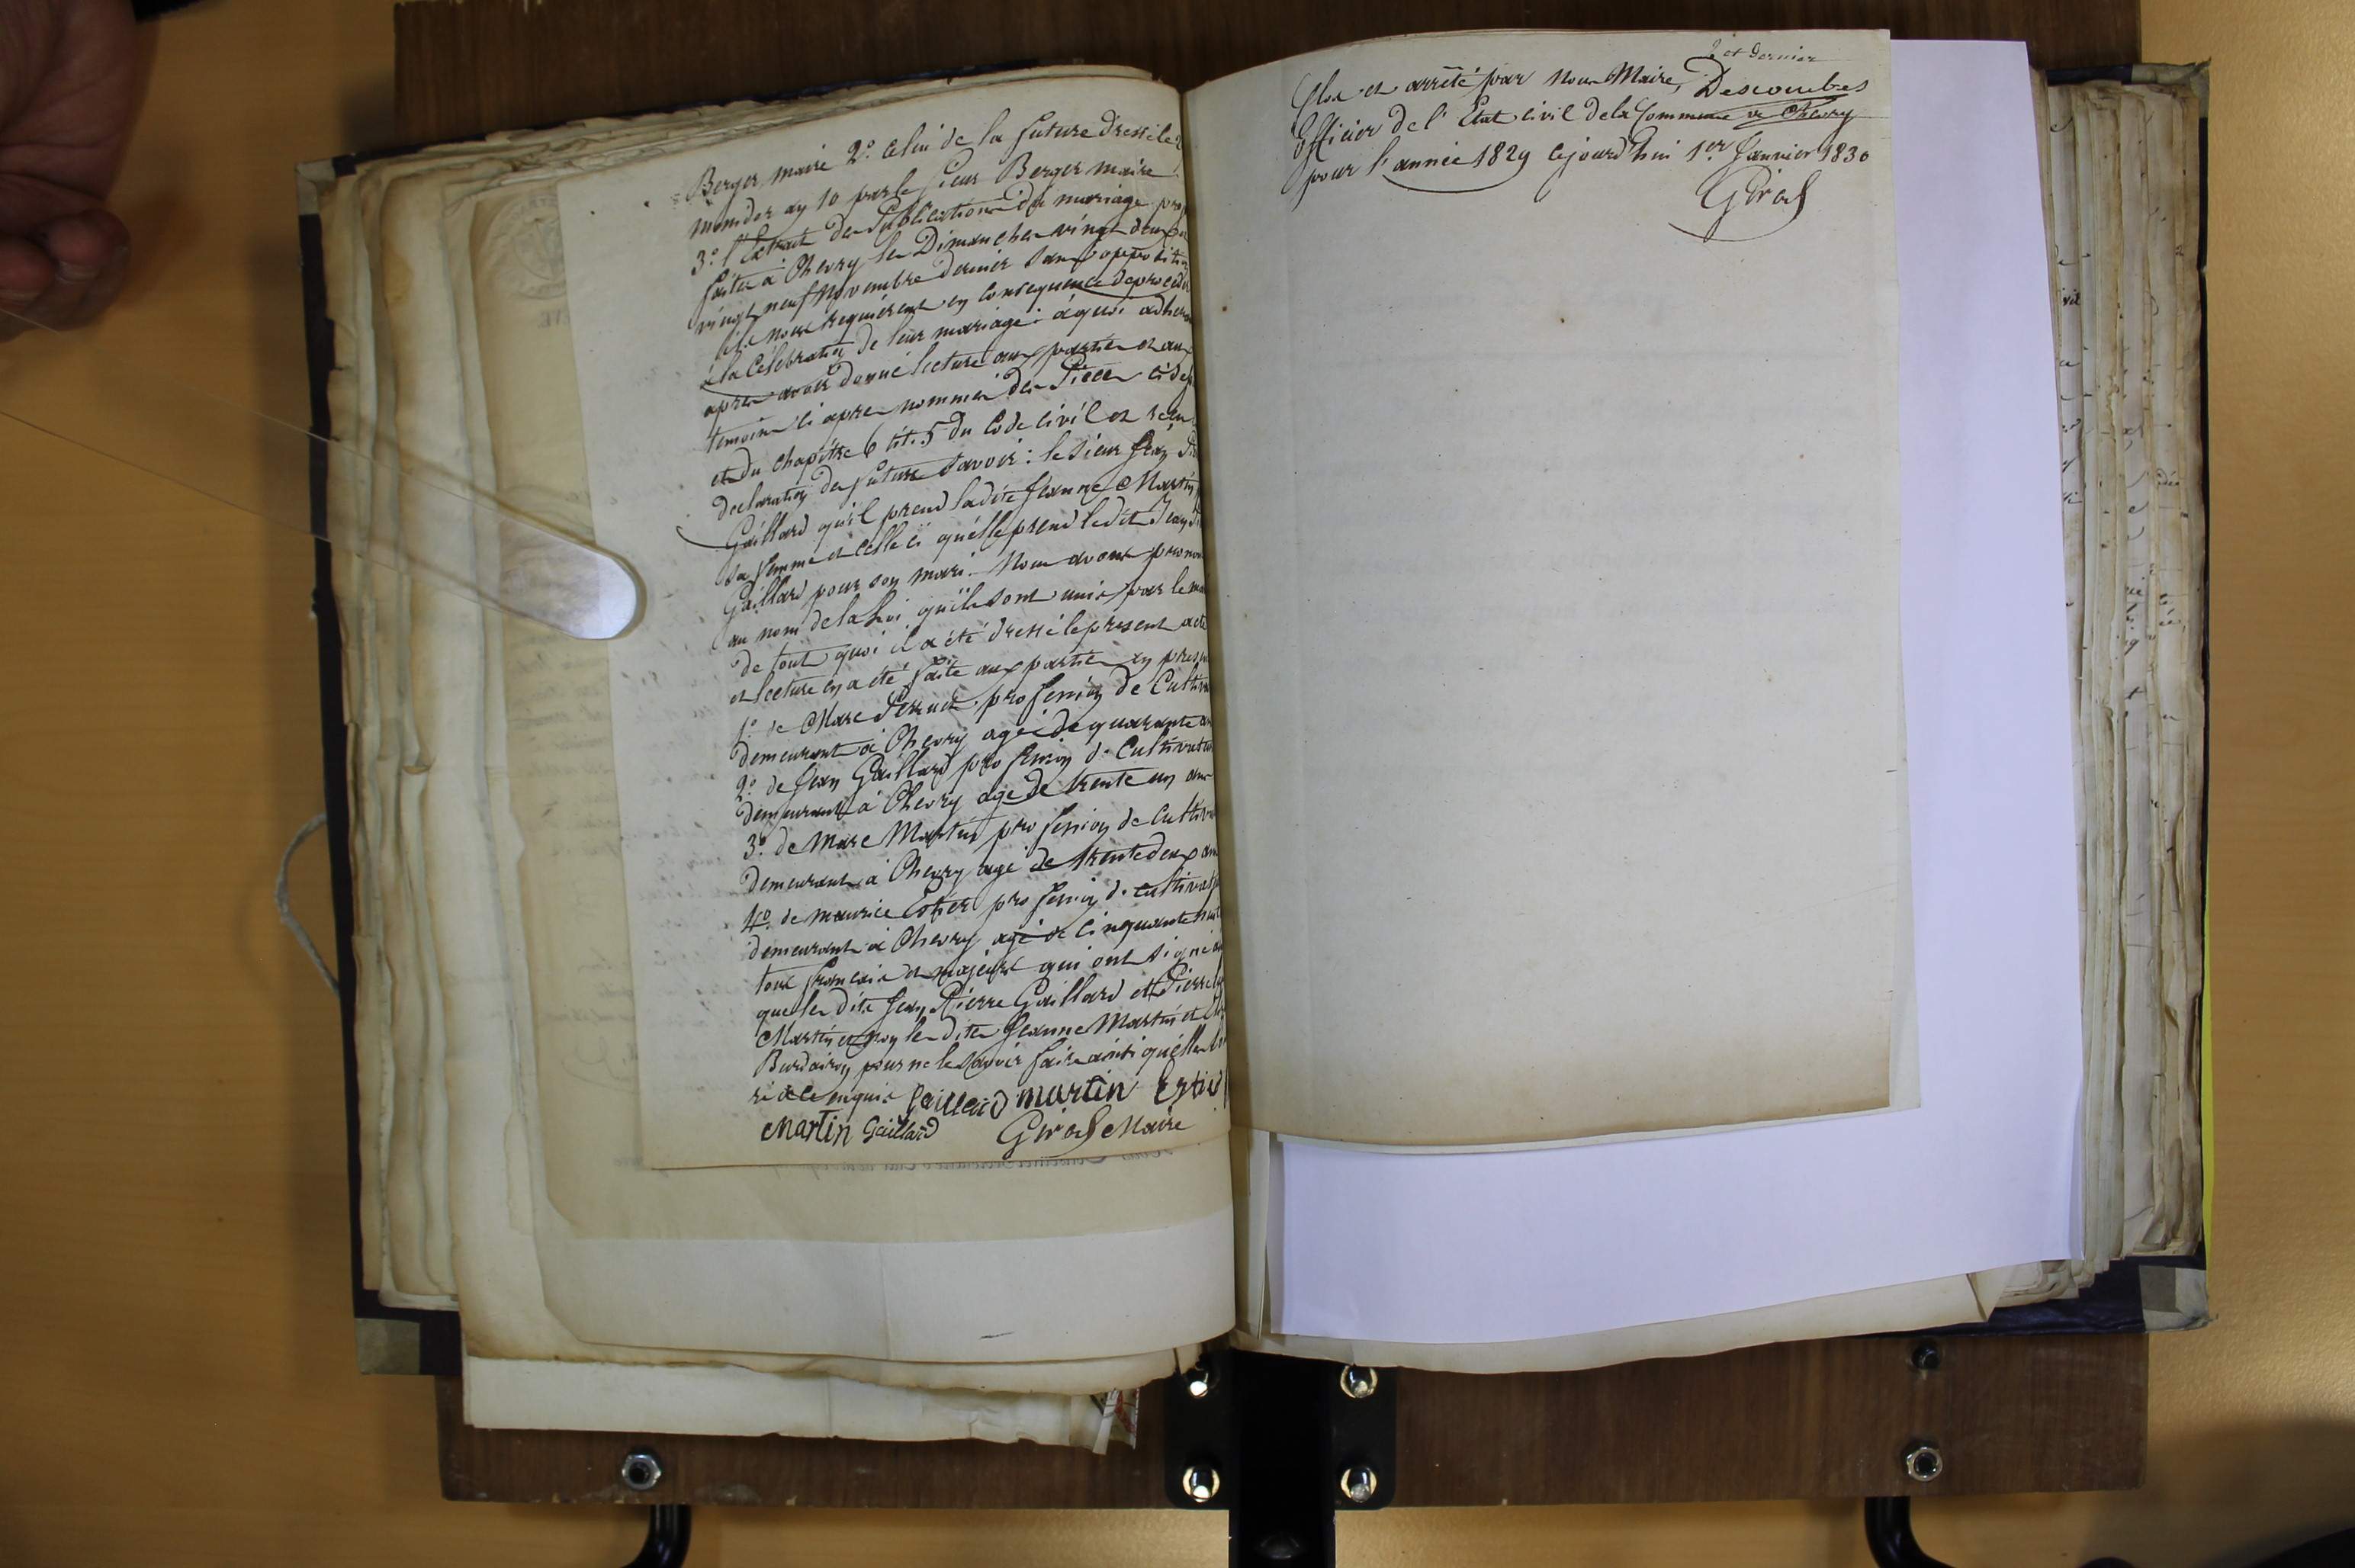 Berger, maire 2º. celui de la future dressé le 2
même dor an 10 par le sieur Berger maire
3º. l'Extrait des Publications du mariage proj
faites à Chevry les Dimanches vingt deux et
vingt neuf Novembre dernier sans opposition
Nous requérent en conséquence de procéder
à la Célébration de leur mariage: à quoi adhérant
après avoir donné lecture aux parties et aux
témoins ci après nommés des Pièces ci des
et du chapitre 6 tit. 5 du Code civil et reçu
declaration des futurs savoir: le sieur Jean Pi
Gaillard qu'il prend ladite Jeanne Martin
sa femme et celle ci qu'elle prend le dit Jean Pi
Gaillard pour son mari. Nous avons prononc
au nom de la Loi qu'ils sont unis par le ma
de tout quoi il a été dressé le présent acte
et lecture en a été faite aux parties en prese
1º. de Marc Perruet profession de Cultiva
demeurant à Chevry agé de quarante an
2º. de Jean Gaillard profession de Cultivateu
demeurant à Chevry age de trente un ans
3º. de Marc Martin profession de Cultiva
demeurant à Chevry age de trente deux ans
4º. de maurice Estier profession de Cultivat
demeurant à Chevry agé de cinquante huit
tous français et majeurs qui ont signé ain
que les dits Jean Pierre Gaillard et Pierre
Martin et non les dites Jeanne Martin et
Burdairon pour ne le savoir faire ainsi qu'elles
ré de ce enquis Gaillard martin Estier
Martin Gaillard Girod Maire
2 et dernier
Clos et arrêté par Nous Maire, Descombes
Officier de l'Etat civil de la Commune de Chevry
pour l'année 1829 cejourd'hui 1er Janvier 1830
Girod